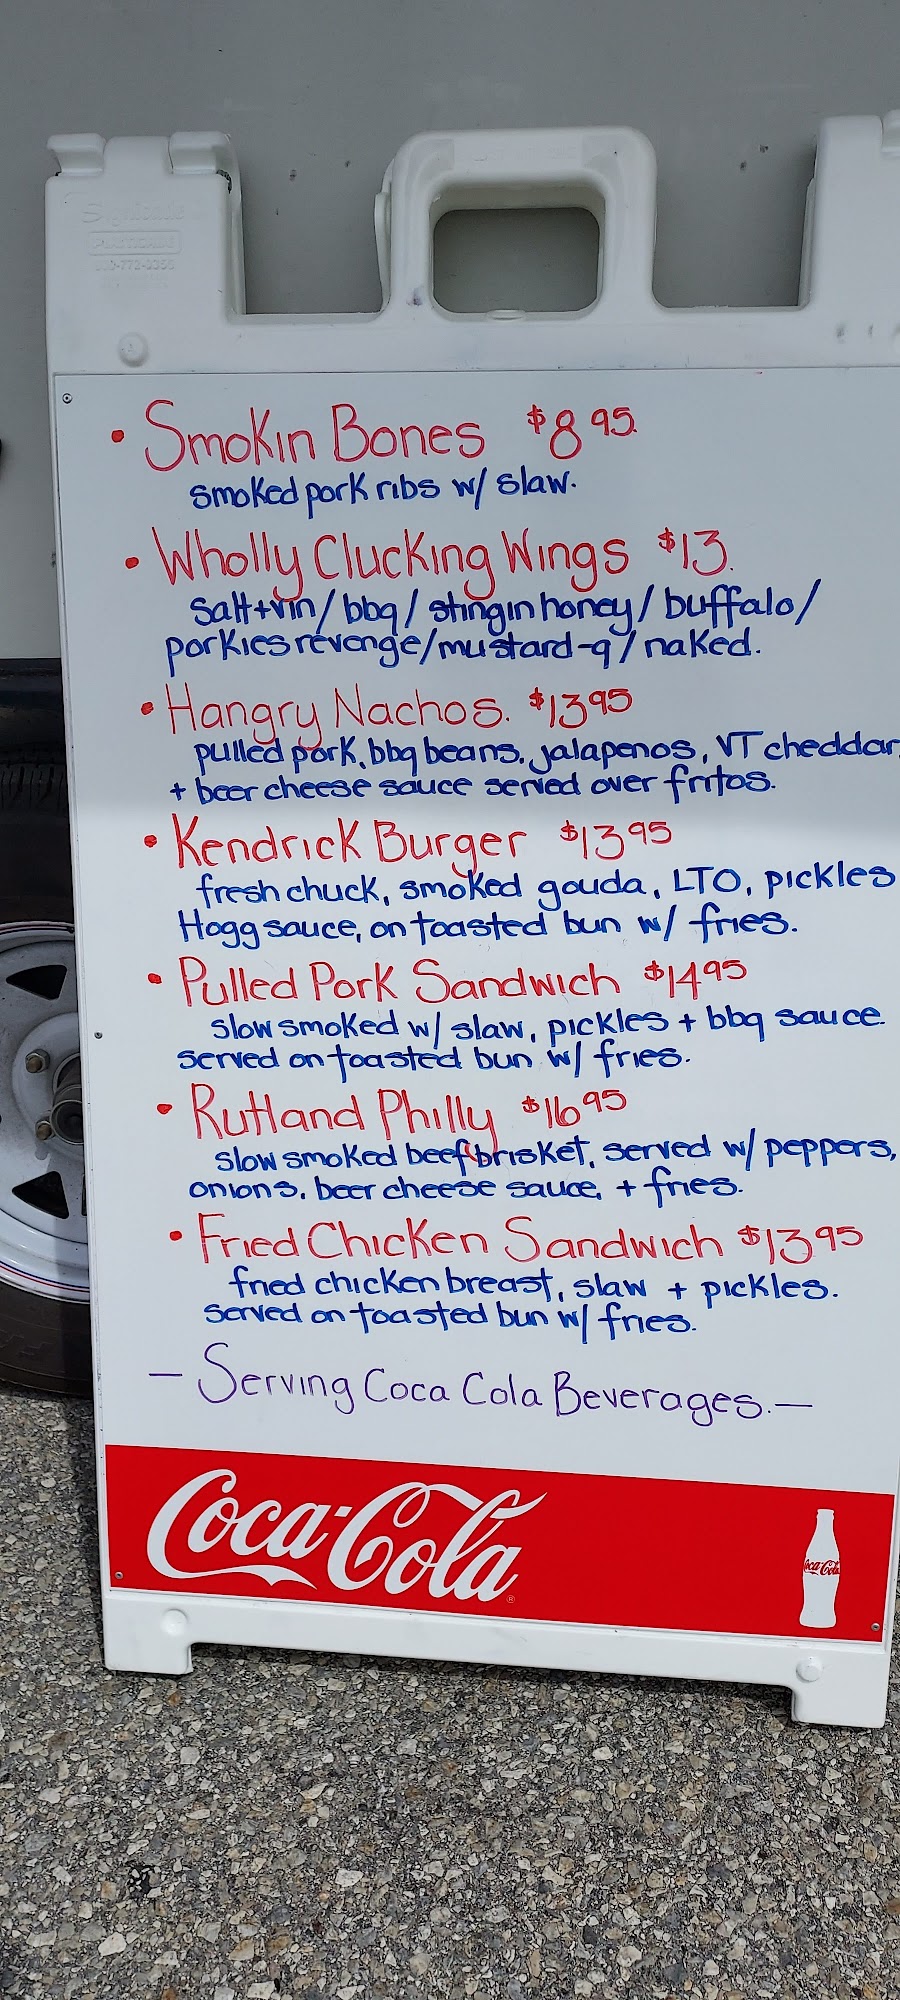 Signicade
PLASTICADE
• Smokin Bones $8.95
smoked pork ribs w/ slaw.
• Wholly Clucking Wings $13.
salt+vin/ bbq/ stingin honey/ buffalo/
porkies revenge/mustard-q/ naked.
• Hangry Nachos. $13.95
pulled pork, bbq beans, jalapenos, VT cheddar,
+ beer cheese sauce served over fritos.
• Kendrick Burger $13.95
fresh chuck, smoked gouda, LTO, pickles
Hogg sauce, on toasted bun w/ fries.
• Pulled Pork Sandwich $14.95
slow smoked w/ slaw, pickles + bbq sauce.
served on toasted bun w/ fries.
• Rutland Philly $16.95
slow smoked beef brisket, served w/ peppers,
onions, beer cheese sauce, + fries.
• Fried Chicken Sandwich $13.95
fried chicken breast, slaw + pickles.
served on toasted bun w/ fries.
— Serving Coca Cola Beverages. —
Coca-Cola ®
Coca-Cola